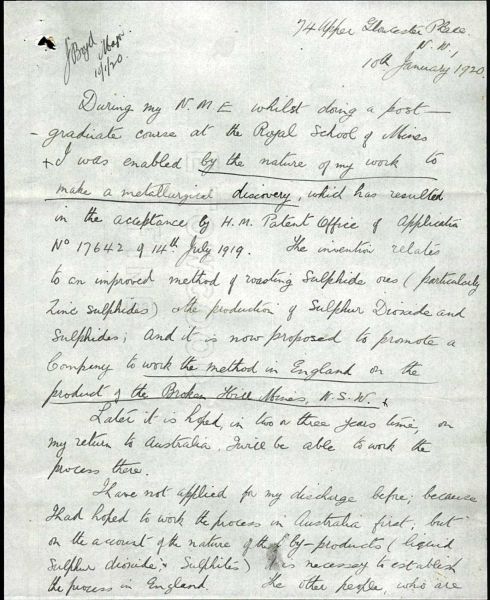 J Boyd
Major
10/1/20.
74 Upper Gloucester Place.
N.W.1
10th January 1920.
During my N.M.E whilst doing a post-
graduate course at the Royal School of Mines
I was enabled by the nature of my work to
make a metallurgical discovery, which has resulted
in the acceptance by H.M. Patent Office of Application
No 17642 of 14th July 1919. The invention relates
to an improved method of roasting Sulphide ores (particularly
Zinc sulphides) & the production of Sulphur Dioxide and
Sulphides; and it is now proposed to promote a
Company to work the method in England on the
product of the Broken Hill Mines, N.S.W.
Later it is hoped, in two or three years time, on
my return to Australia, I will be able to work the
process there.
I have not applied for my discharge before; because
I had hoped to work the process in Australia first, but
on the account of the nature of the by-products (liquid
Sulphur dioxide & Sulphites) it is necessary to establish
the process in England. The other people, who are